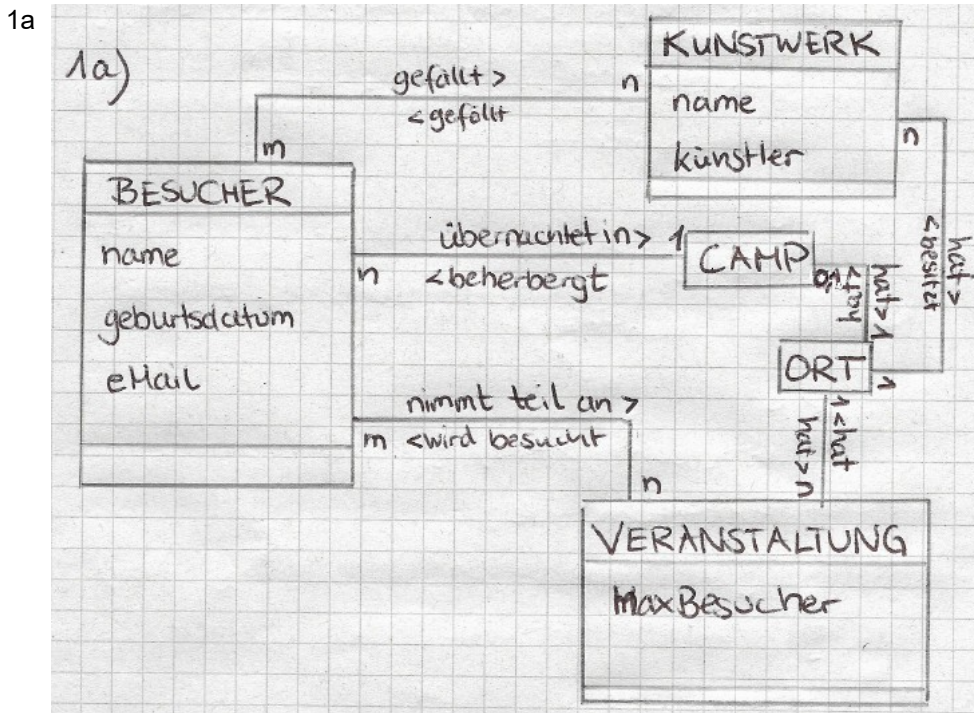 1a
1a)
gefällt >
< gefällt
n
m
KUNSTWERK
name
künstler
n
hat >
< besitzt
1
BESUCHER
name
geburtsdatum
eMail
übernachtet in >
< beherbergt
n
1
CAMP
hat > 1
< hat
ORT
nimmt teil an >
< wird besucht
m
n
1 < hat
hat > n
VERANSTALTUNG
MaxBesucher